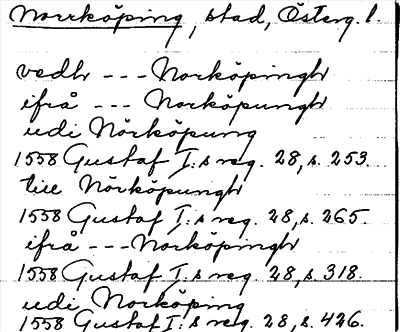 Norrköping, stad, Österg. l.
vedh --- Norköpingh
ifrå --- Norköpungh
udi Nörköpung
1558 Gustaf I:s reg. 28, s. 253.
till Nörköpungh
1558 Gustaf I:s reg. 28, s. 265.
ifrå --- Norköpingh
1558 Gustaf I:s reg. 28, s. 318.
udi Norköping
1558 Gustaf I:s reg. 28, s. 426.